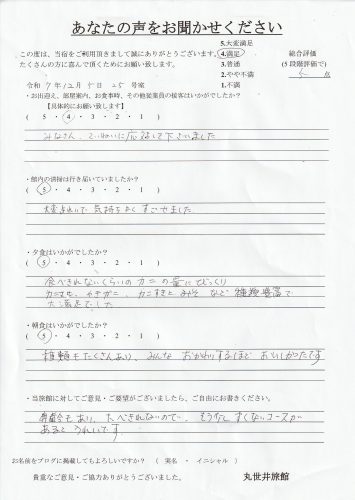 あなたの声をお聞かせください
この度は、当宿をご利用頂きまして誠にありがとうございます。
たくさんの方に喜んで頂くためにお願い致します。
5.大変満足
4.満足
3.普通
2.やや不満
1.不満
総合評価
(5段階評価で)
5 点
令和7年12月5日 25号室
・お出迎え、部屋案内、お食事時、その他従業員の接客はいかがでしたか?
【具体的にお願いします】
( 5 ・ 4 ・ 3 ・ 2 ・ 1 )
みなさん、ていねいに応対して下さいました
・館内の清掃は行き届いていましたか?
( 5 ・ 4 ・ 3 ・ 2 ・ 1 )
大変きれいで 気持ちよく すごせました
・夕食はいかがでしたか?
( 5 ・ 4 ・ 3 ・ 2 ・ 1 )
食べきれないくらいの カニの量にびっくり
カニさし、やきガニ、カニすきと みそ など 種類豊富で
大満足でした
・朝食はいかがでしたか?
( 5 ・ 4 ・ 3 ・ 2 ・ 1 )
種類もたくさんあり、みんな おかわりするほど おいしかったです
・当旅館に対してご意見・ご要望がございましたら、ご自由にお書きください。
もあり、たべきれないので、もう少し すくないコースが
あると うれしいです
お名前をブログに掲載してもよろしいですか? ( 実名 ・ イニシャル )
貴重なご意見・ご協力ありがとうございました。
丸世井旅館